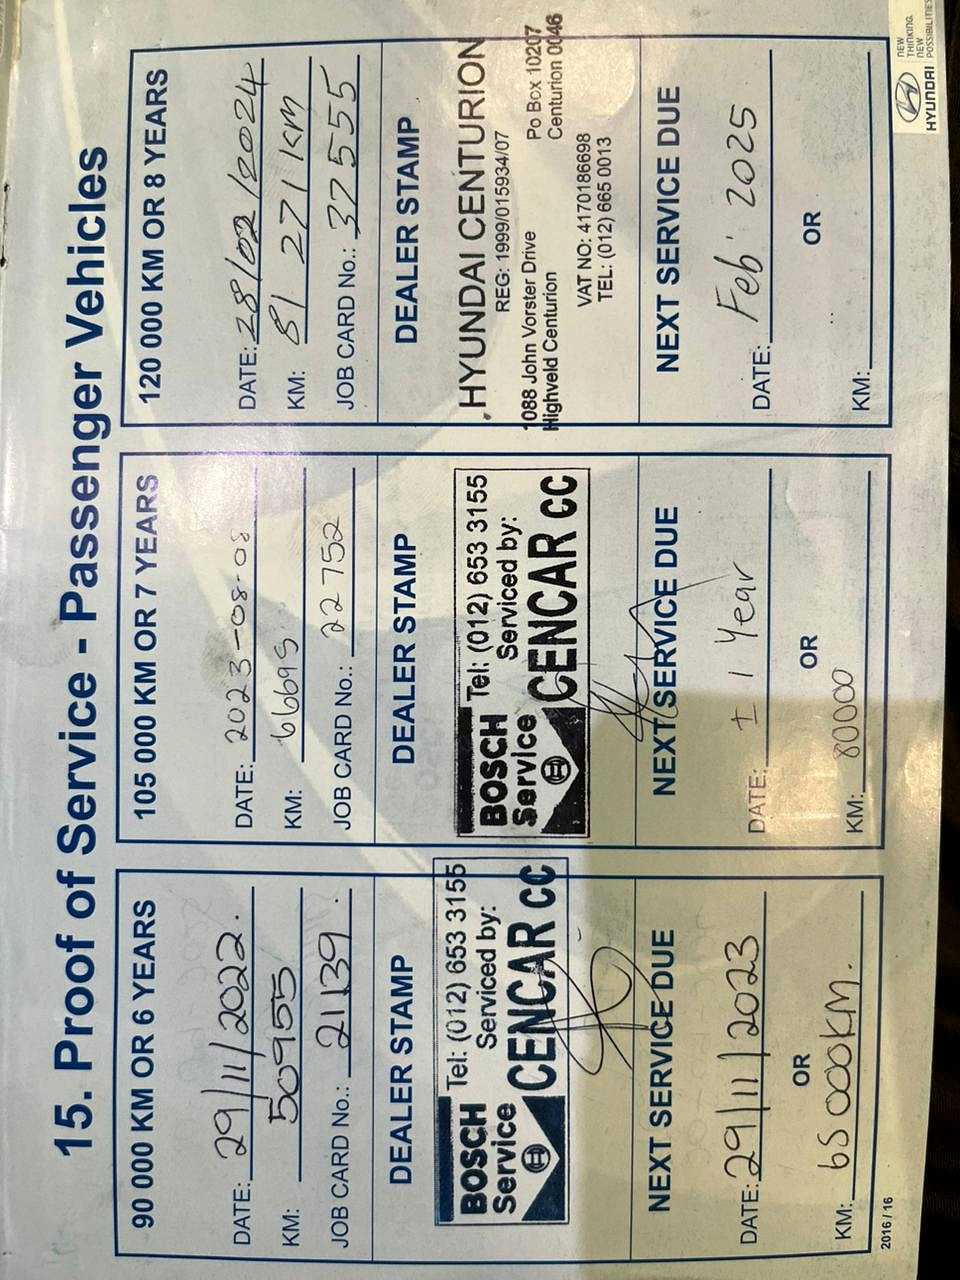 15. Proof of Service - Passenger Vehicles
90 000 KM OR 6 YEARS
DATE: 29/11/2022.
KM: 50955
JOB CARD No.: 21139.
DEALER STAMP
BOSCH
Service
Tel: (012) 653 3155
Serviced by:
CENCAR CC
NEXT SERVICE DUE
DATE: 29/11/2023
OR
KM: 65 000KM.
2016 / 16
105 000 KM OR 7 YEARS
DATE: 2023-08-08
KM: 66695
JOB CARD No.: 22752
DEALER STAMP
BOSCH
Service
Tel: (012) 653 3155
Serviced by:
CENCAR CC
NEXT SERVICE DUE
DATE: ± 1 Year
OR
KM: 80000
120 000 KM OR 8 YEARS
DATE: 28/02/2024
KM: 81 271 KM
JOB CARD No.: 37555
DEALER STAMP
HYUNDAI CENTURION
REG: 1999/015934/07
1088 John Vorster Drive Po Box 10207
Highveld Centurion Centurion 0046
VAT NO: 4170186698
TEL: (012) 665 0013
NEXT SERVICE DUE
DATE: Feb' 2025
OR
KM:
HYUNDAI
NEW
THINKING.
NEW
POSSIBILITIES.